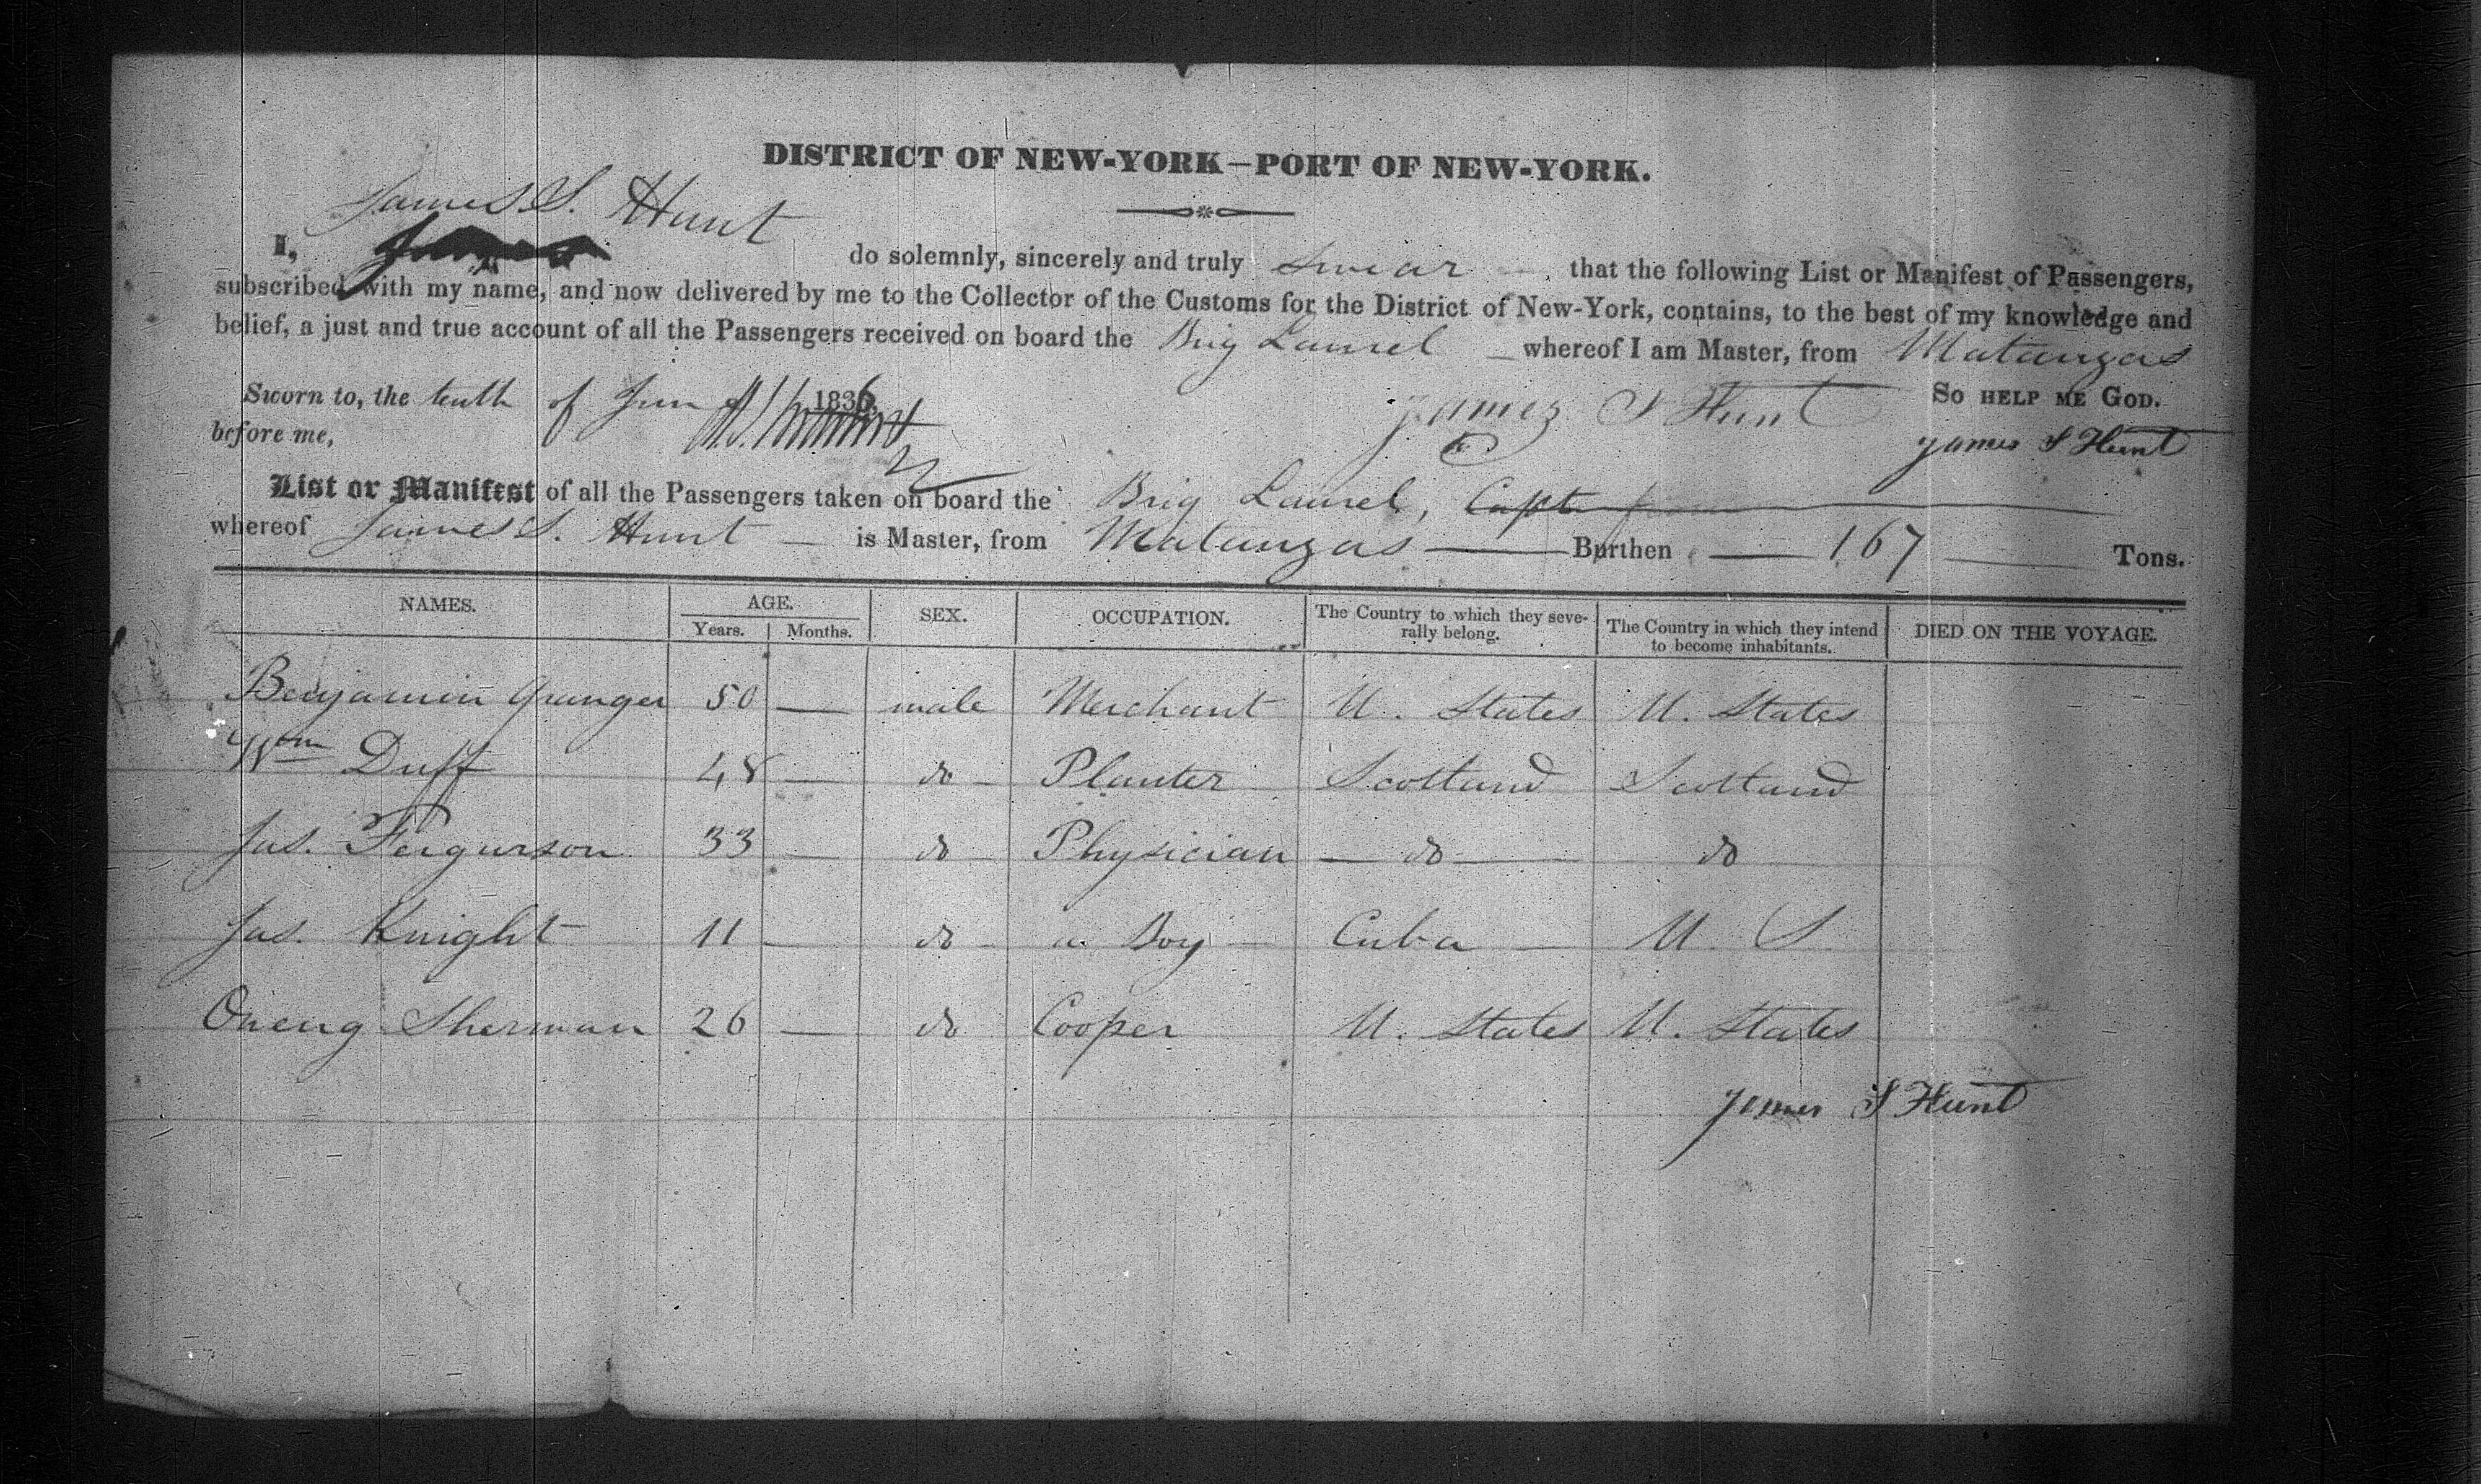 DISTRICT OF NEW-YORK—PORT OF NEW-YORK.
James S. Hunt
I, do solemnly, sincerely and truly swear that the following List or Manifest of Passengers,
subscribed with my name, and now delivered by me to the Collector of the Customs for the District of New-York, contains, to the best of my knowledge and
belief, a just and true account of all the Passengers received on board the Brig Laurel whereof I am Master, from Matanzas
Sworn to, the tenth of June 1836, James S Hunt SO HELP ME GOD.
before me, James S Hunt
List or Manifest of all the Passengers taken on board the Brig Laurel, Capt
whereof James S. Hunt is Master, from Matanzas Burthen 167 Tons.
NAMES. AGE. Years. Months. SEX. OCCUPATION. The Country to which they severally belong. The Country in which they intend to become inhabitants. DIED ON THE VOYAGE.
Benjamin Granger 50 — male Merchant U. States U. States
Wm Duff 48 — do Planter Scotland Scotland
Jas. Fergurson 33 — do Physician — do — do
Jas. Knight 11 — do a Boy Cuba — U. S
Sherman 26 — do Cooper U. States U. States
James S Hunt